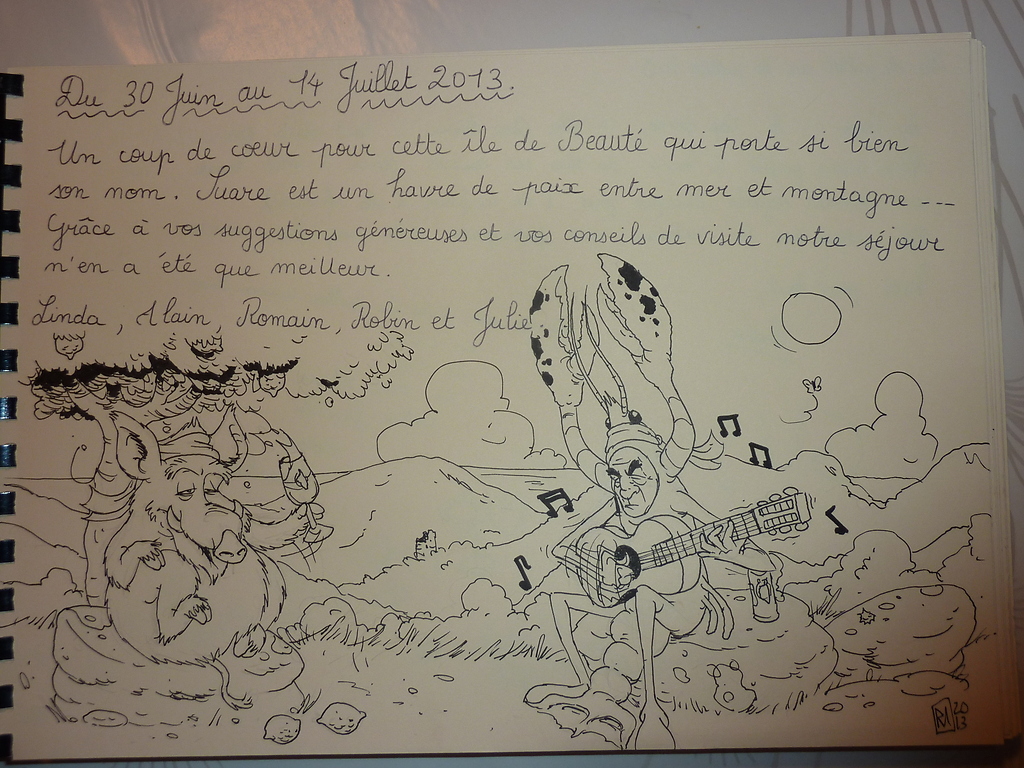 Du 30 Juin au 14 Juillet 2013.
Un coup de coeur pour cette île de Beauté qui porte si bien
son nom. Suare est un havre de paix entre mer et montagne ---
Grâce à vos suggestions généreuses et vos conseils de visite notre séjour
n'en a été que meilleur.
Linda, Alain, Romain, Robin et Julie.
2013